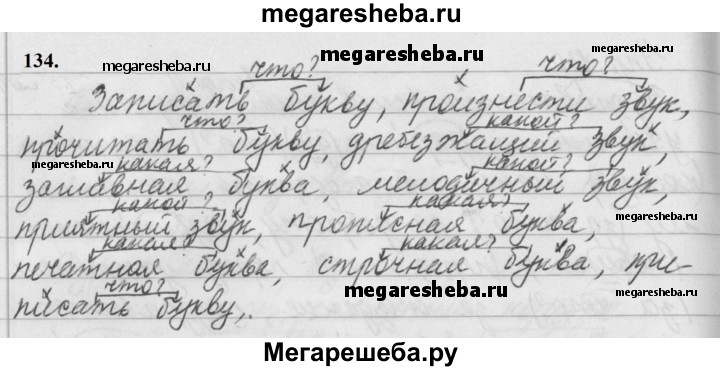 megaresheba.ru
134.
megaresheba.ru
что?
megaresheba.ru
что?
megaresheba.ru
Записать букву, произнести звук,
что?
какой?
прочитать букву, дребезжащий звук,
megaresheba.ru
какая?
какой?
заглавная буква, мелодичный звук,
какой?
какая?
megaresheba.ru
приятный звук, прописная буква,
какая?
какая?
печатная буква, строчная буква, при-
megaresheba.ru
что?
писать букву.
megaresheba.ru
Мегарешеба.ру